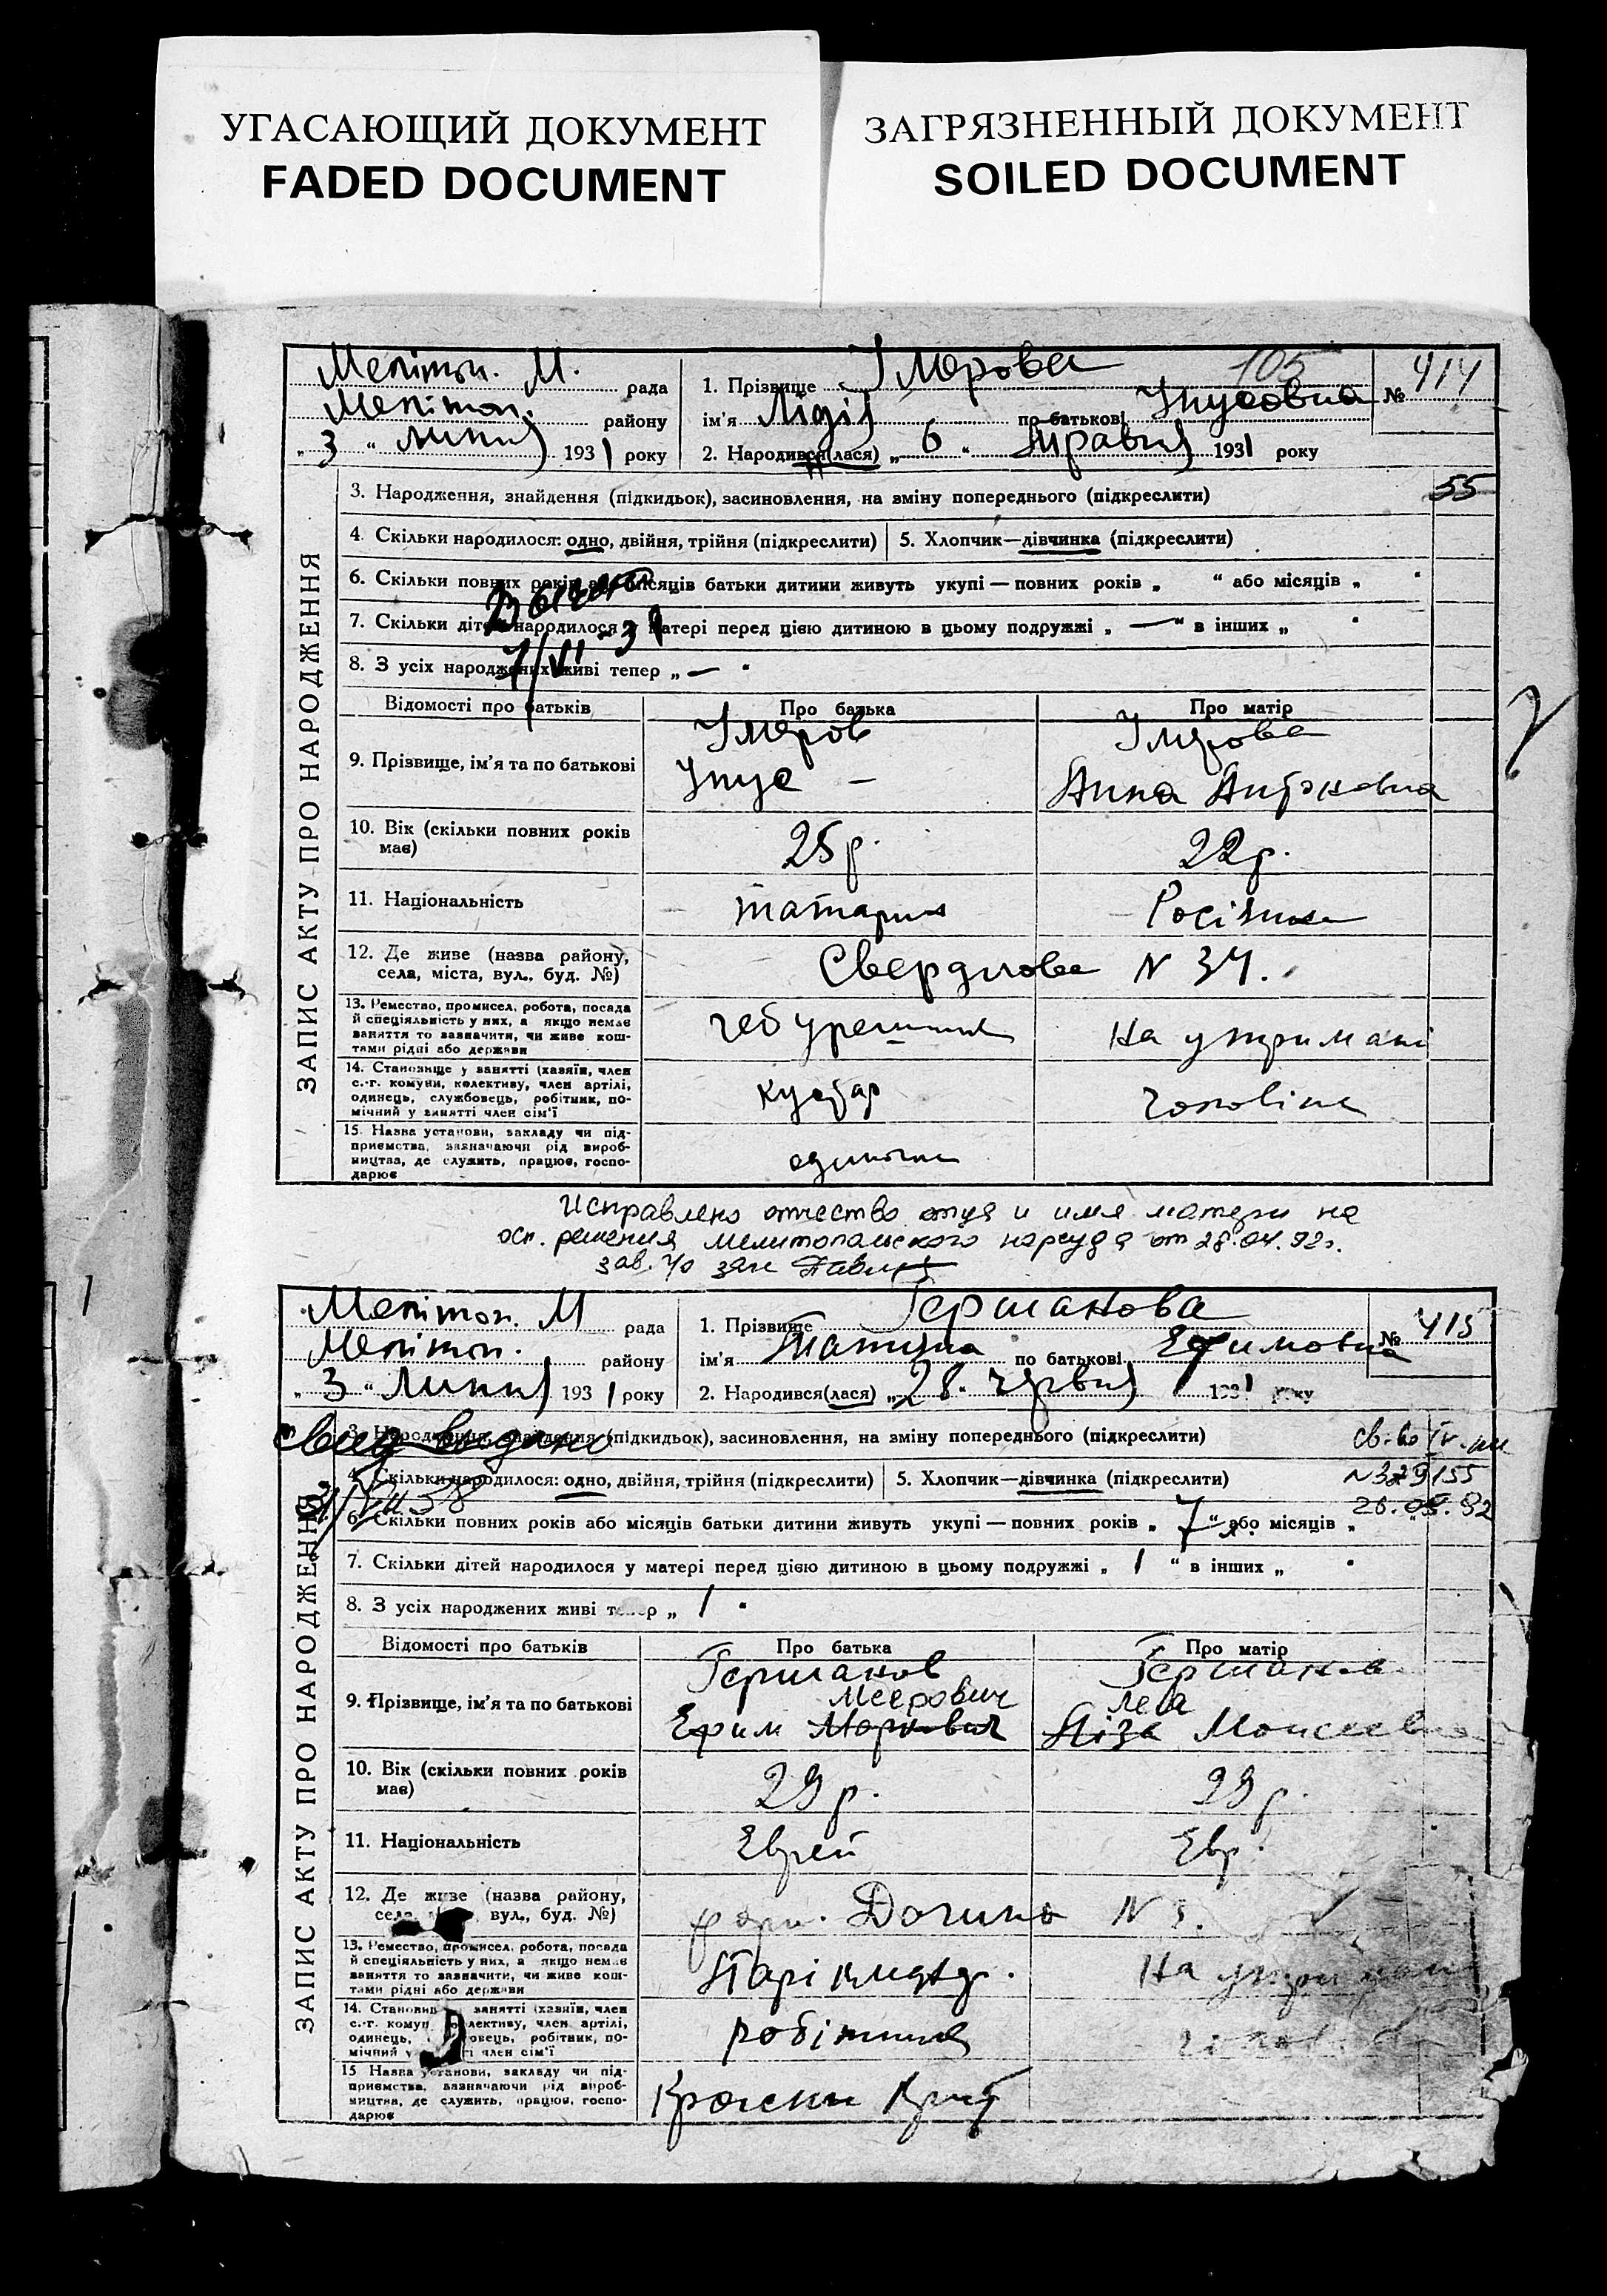 УГАСАЮЩИЙ ДОКУМЕНТ
FADED DOCUMENT
ЗАГРЯЗНЕННЫЙ ДОКУМЕНТ
SOILED DOCUMENT
105
Меліtоп. М. рада
Меліtоп. району
„ 3 “ липня 1931 року
1. Прізвище Умерова
№ 414
ім'я Лідія по батькові
2. Народився(лася) „ 6 “ травня 1931 року
ЗАПИС АКТУ ПРО НАРОДЖЕННЯ
3. Народження, знайдення (підкидьок), засиновлення, на зміну попереднього (підкреслити)
55
4. Скільки народилося: одно, двійня, трійня (підкреслити) 5. Хлопчик—дівчинка (підкреслити)
6. Скільки повних років або місяців батьки дитини живуть укупі — повних років „ “ або місяців „ “
7. Скільки дітей народилося у матері перед цією дитиною в цьому подружжі „ — “ в інших „ “
8. З усіх народжених живі тепер „ — “
Відомості про батьків Про батька Про матір
9. Прізвище, ім'я та по батькові
Умеров
Умерова
Анна
10. Вік (скільки повних років має) 25 р. 22 р.
11. Національність татарин Росіянка
12. Де живе (назва району, села, міста, вул., буд. №) Свердлова N 34.
13. Ремество, промисел, робота, посада
й спеціяльність у них, а якщо немає
заняття то зазначити, чи живе кош-
тами рідні або держави
чебурешник
На утримані
14. Становище у занятті (хазяїн, член
с.-г. комуни, колективу, член артілі,
одинець, службовець, робітник, по-
мічний у занятті член сім'ї
кустар
чоловіка
15. Назва установи, закладу чи під-
приємства, зазначаючи рід вироб-
ництва, де служить, працює, госпо-
дарює
Исправлено отчество отца и имя матери на
осн. решения Мелитопальского нарсуда от 28.04.92г.
Меліtоп. М рада
Меліtоп. району
„ 3 “ липня 1931 року
1. Прізвище Германова
№ 415
ім'я по батькові Ефимовна
2. Народився(лася) „ 28. червня 1931 року
ЗАПИС АКТУ ПРО НАРОДЖЕННЯ
3. Народження, знайдення (підкидьок), засиновлення, на зміну попереднього (підкреслити)
свид выдано
N329155
4. Скільки народилося: одно, двійня, трійня (підкреслити) 5. Хлопчик—дівчинка (підкреслити)
6. Скільки повних років або місяців батьки дитини живуть укупі — повних років „ 7 “ або місяців „ “
7. Скільки дітей народилося у матері перед цією дитиною в цьому подружжі „ 1 “ в інших „ “
8. З усіх народжених живі тепер „ 1 “
Відомості про батьків Про батька Про матір
9. Прізвище, ім'я та по батькові
Германов
Меерович
Ефим Маркович
Германова
Леа
Ліза Моисеевна
10. Вік (скільки повних років має) 29 р. 29 р.
11. Національність Еврей Евр.
12. Де живе (назва району, села, вул., буд. №)
13. Ремество, промисел, робота, посада
й спеціяльність у них, а якщо немає
заняття то зазначити, чи живе кош-
тами рідні або держави
На
14. Становище занятті (хазяїн, член
с.-г. комуни, колективу, член артілі,
одинець, робітник, по-
мічний у член сім'ї
робітник
15 Назва установи, закладу чи під-
приємства, зазначаючи рід вироб-
ництва, де служить, працює, госпо-
дарює